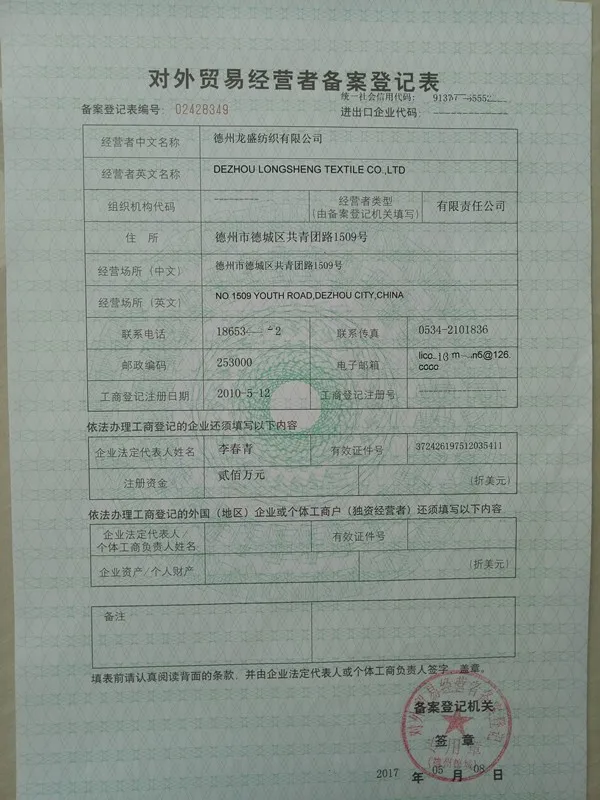 对外贸易经营者备案登记表
统一社会信用代码:
备案登记表编号: 02428349 进出口企业代码:
经营者中文名称 德州龙盛纺织有限公司
经营者英文名称 DEZHOU LONGSHENG TEXTILE CO.,LTD
组织机构代码 ---------- 经营者类型 (由备案登记机关填写) 有限责任公司
住 所 德州市德城区共青团路1509号
经营场所(中文) 德州市德城区共青团路1509号
经营场所(英文) NO 1509 YOUTH ROAD,DEZHOU CITY,CHINA
联系电话 联系传真 0534-2101836
邮政编码 253000 电子邮箱
工商登记注册日期 2010-5-12 工商登记注册号 ----------
依法办理工商登记的企业还须填写以下内容
企业法定代表人姓名 李春青 有效证件号 372426197512035411
注册资金 贰佰万元 (折美元)
依法办理工商登记的外国(地区)企业或个体工商户(独资经营者)还须填写以下内容
企业法定代表人/
个体工商负责人姓名 有效证件号
企业资产/个人财产 (折美元)
备注
填表前请认真阅读背面的条款,并由企业法定代表人或个体工商负责人签字、盖章。
备案登记机关
签 章
2017 年 05 月 08 日